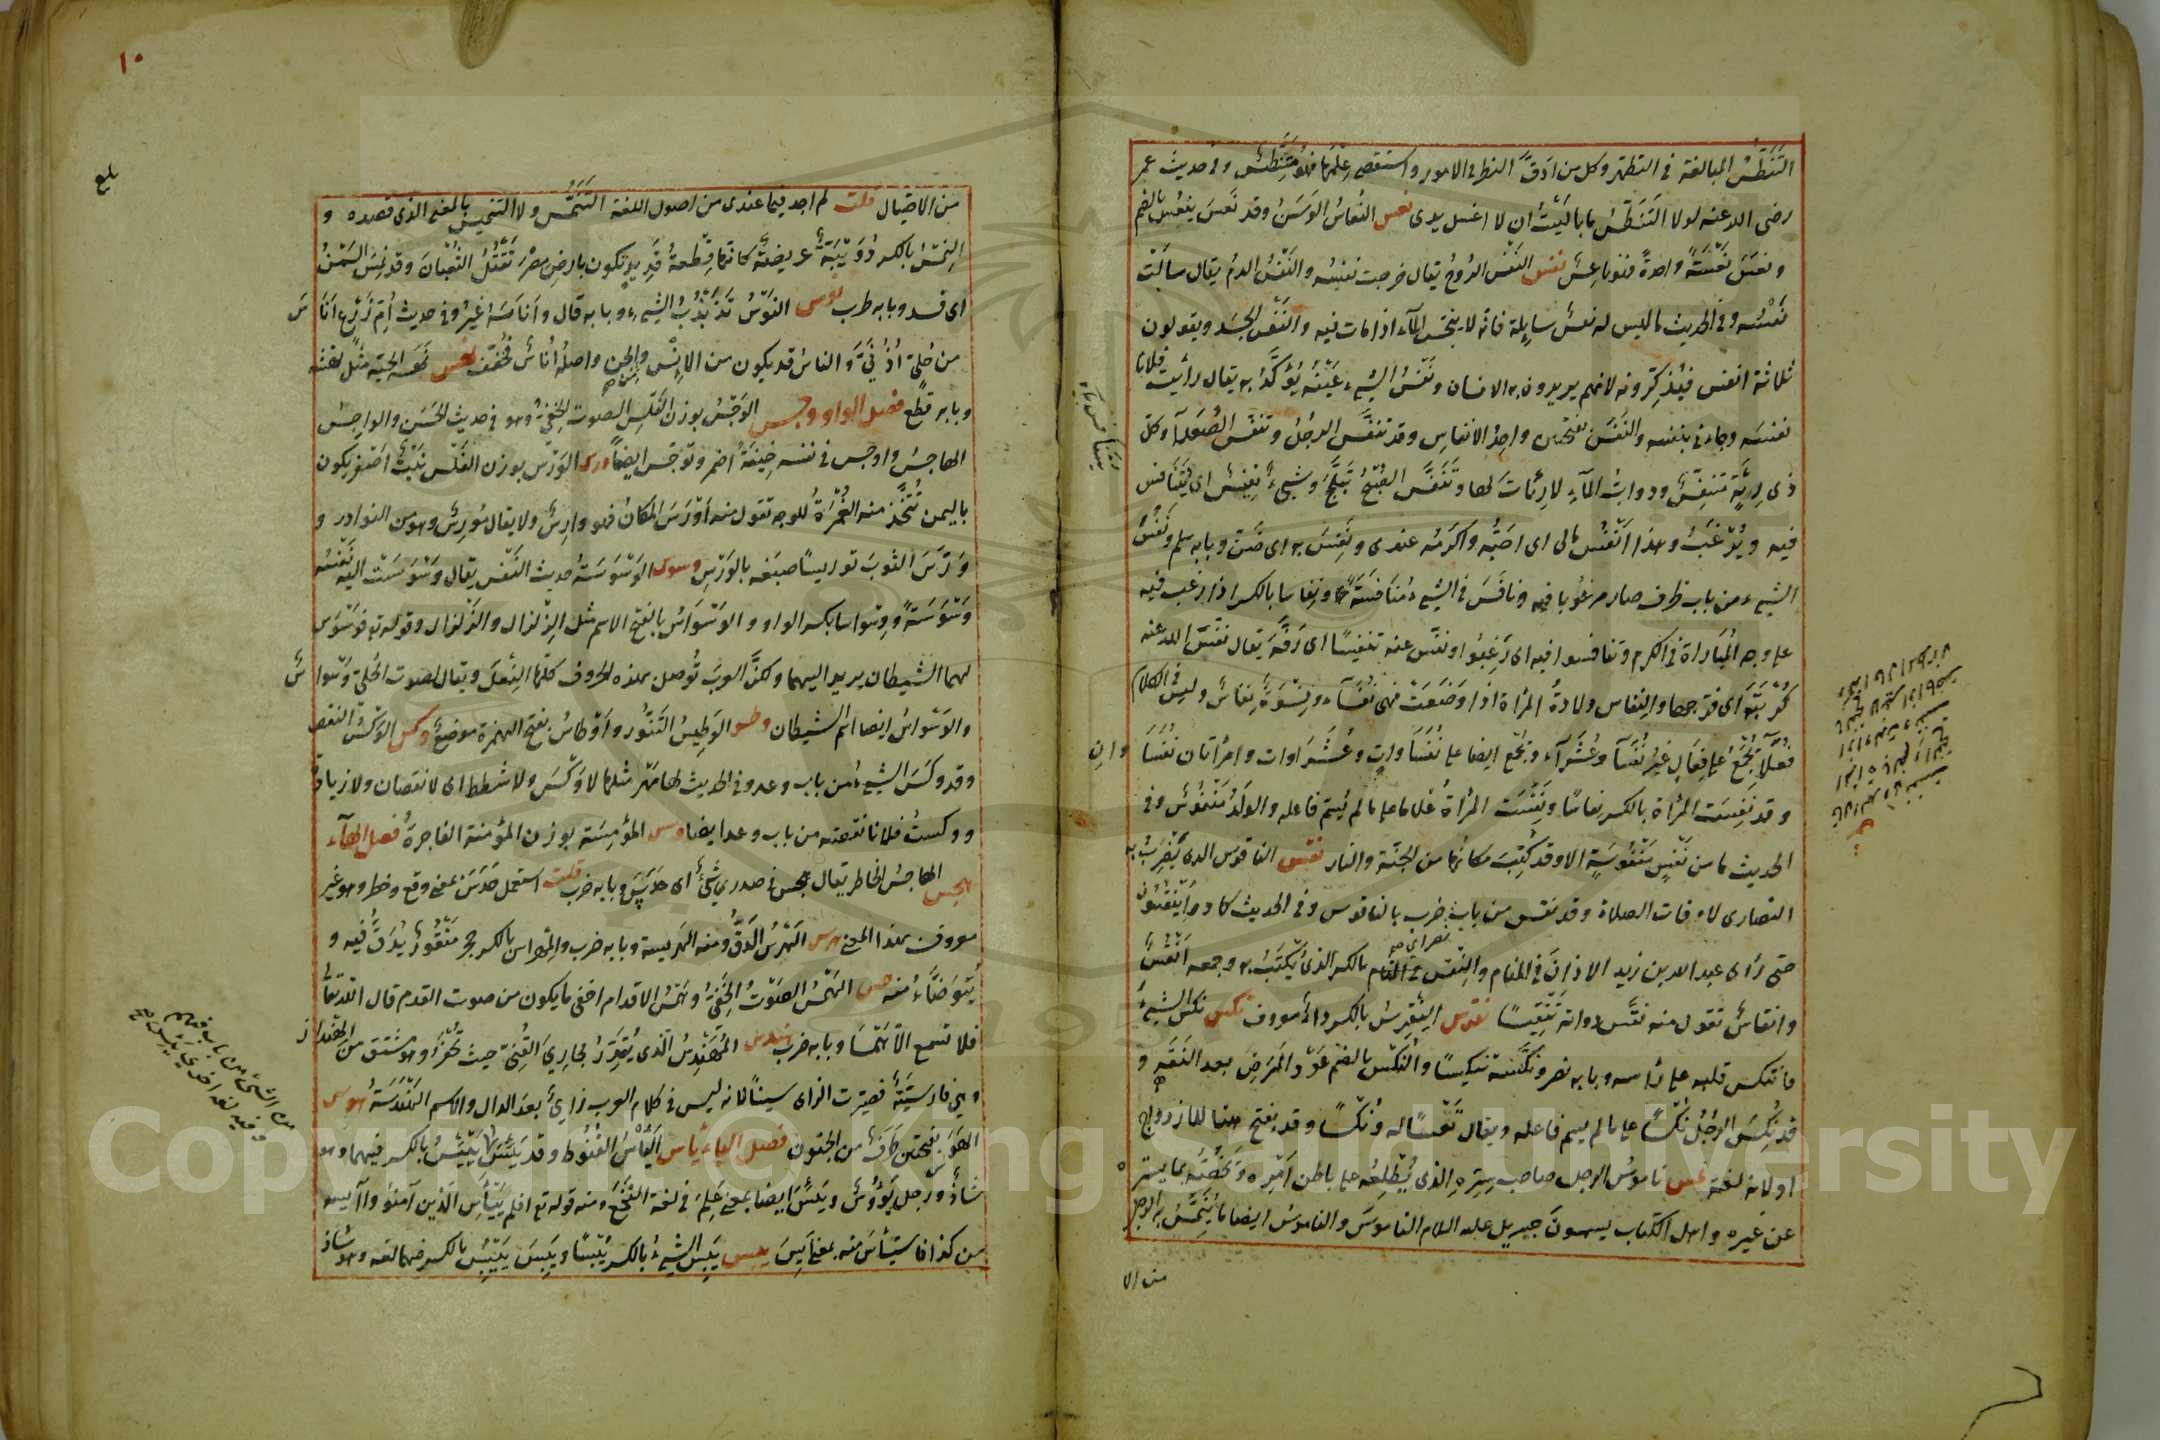 التَّنَطُّسُ المبالغة في التطهّر وكل من ادَقَّ النظر في الامور واستقصى عِلْمَها فهو مُتَنَطِّسٌ وفي حديث عمر
رضى الله عنه لولا التَّنَطُّسُ ما باليْتُ ان لا اغسل يدى نعس النُّعاسُ الوَسَنُ وقد نَعَسَ ينعُسُ بالضم
ونعَسَ نَعْسَةً واحدةً فهو ناعِسٌ نفس النَّفْس الرُوحُ يقال خرجت نفسُه والنَّفْسُ الدمُ يقال سالَتْ
نَفْسُه وفي الحديث ما ليس له نفسٌ سايلة فانّه لا ينجّس المآء اذا مات فيه والنَّفْس الجَسَد ويقولون
ثلاثة انفس فيُذكِّرونه لانهم يريدون به الانسان ونَفْسُ الشيء عَيْنُه يُؤكَّدُ به يقال رأيت فلانا
نفسَه وجاءنى بنفسه والنَفَسُ بفتحتين واحِدُ الانفاس وقد تنفَّسَ الرجلُ وتنفّس الصُّعَدآء وكلّ
ذى رِئَةٍ متنفِّسٌ ودوابُّ المآء لا رِئاتَ لها وتنفَّسَ الصُّبْحُ تَبَلَّجَ وشيءٌ نفِيسٌ اى يُتَنافَسُ
فيه ويُرْغَبُ وهذا اَنْفَسُ مالى اى احَبُّه واكرَمُه عندى ونَفِسَ به اى ضَنَّ وبابه سلم ونَفُسَ
الشيء من باب ظرف صار مرغُوبا فيه ونافَسَ في الشيء مُنافَسَةً ونِفاسا بالكسر اذا رغب فيه
على وجه المُبَاراة في الكرم وتنافسوا فيه اى رَغِبُوا ونَفّس عنه تنفيسًا اى رَفَّهَ يقال نفّسَ الله عنه
كُرْبَتَه اى فرّجها والنِفاس ولادةُ المرأة اذا وَضَعَتْ فهى نُفَسآء ونِسْوَةٌ نِفاسٌ وليس في الكلام
فُعَلآءُ يُجْمَعُ على فِعَالٍ غيرُ نُفَسآءَ وعُشَرآءَ ويُجمع ايضا على نُفَسَاواتٍ وعُشَراوات وامرأتان نُفَسَاوانِ
وقد نَفِسَت المرأة بالكسر نِفاسًا ونُفِسَت المرأةُ غلاما على ما لم يُسمّ فاعله والولدُ مَنْفُوسٌ وفي
الحديث ما من نَفْسٍ مَنْفُوسَةٍ الا وقد كُتِبَ مكانُها من الجنّة والنار نقس الناقوس الذى يَضْرِبُ به
النصارى لاوقات الصلاة وقد نقس من باب ضرب بالناقوس وفي الحديث كادوا يَنْقُسُون
حتى رأى عبد الله بن زيد الاذانَ في المنام والنِقْس بالكسر الذى يُكْتَبُ به وجمعه اَنْقُسٌ
وانقاسٌ تقول منه نقّس دواته تَنْقِيسًا نقرس النِّقْرِسُ بالكسر داءٌ معروف نكس نكس الشيءَ
فانتكس قلبه على رأسه وبابه نصر ونكّسه تنكيسًا والنُكْس بالضم عَوْد المَرَضِ بعد النَقَهِ و
قد نُكِسَ الرجُلُ نُكْسًا على ما لم يسم فاعله ويقال تَعْسًا له ونُكْسًا وقد يفتح هنا للازدواج
او لانه لغة نمس نامُوسُ الرجل صاحب سِرّه الذى يُطْلِعُه على باطن اَمْرِه ويَخُصُّه بما يستره
عن غيره واهل الكتاب يسمون جبريل عليه السلام النامُوسَ والنامُوسُ ايضا ما يُنَمِّسُ به الرجل
من الا
١٠
بلغ
من الاحتيال قلت لم اجد فيما عندى من اصول اللغة التَنَمُّس ولا التنميس بالمعنى الذى قصده و
النِمْسُ بالكسر دُوَيْبَّةٌ عريضةٌ كانّها قِطعةُ قَدِيدٍ تكون بارض مصرَ تَقْتُلُ الثعْبَانَ وقد نَمِسَ السَمْنُ
اى فسد وبابه طرب نوس النَّوْسُ تَذَبْذُبُ الشيء وبابه قال واَناسَهُ غيرُه وفي حديث اُمّ زَرْعٍ اَنَاسَ
من حُلىّ اُذُنَىَّ والناسُ قد يكون من الاِنْس والجن واصله اُناسٌ فخُفّف نهس نَهسَه الحيّة مثل نهَشه
وبابه قطع فصل الواو وجس الوَجْسُ بوزن الفَلْس الصوت الخفىّ وهو في حديث الحَسَن والواجِسُ
الهاجسُ واوجس في نفسه خِيفَةً اضمر وتوَجّس ايضا ورس الوَرْس بوزن الفَلْس نبْتٌ اَصْفَر يكون
باليمن تُتَّخَذ منه الغُمْرةُ للوجه تقول منه اَوْرَسَ المكانُ فهو وارِسٌ ولا يقال مُورِسٌ وهو من النوادر و
وَرّسَ الثوبَ توريسًا صبَغه بالوَرْس وسوس الوَسْوَسَةُ حديث النَفْس يقال وَسْوَسَتْ اليه نَفْسُه
وَسْوَسَةً ووِسْواسا بكسر الواو والوَسْوَاسُ بالفتح الاسم مثل الزِلزال والزَلزال وقوله تع فوَسْوَس
لهما الشيطان يريد اليهما ولكنَّ العربَ تُوصل بهذه الحروف كلّها الفِعلَ ويقال لصوت الحَلْىِ وَسْوَاسٌ
والوَسْوَاسُ ايضا اسم الشيطان وطس الوَطِيسُ التَنُّور واَوْطاسُ بفتح الهمزة موضعٌ وكس الوَكْسُ النقص
وقد وكَسَ الشيءُ من باب وعد وفي الحديث لها مَهْر مثلها لا وَكْسَ ولا شطط اى لا نقصان ولا زيادة
ووكستُ فلانا نقصته من باب وعد ايضا ومس المُومِسَة بوزن المؤمنة الفاجرة فصل الهآء
هجس الهاجسُ الخاطر يقال هجس في صدرى شئٌ اى حَدَسَ وبابه ضرب قلت استعمل حَدَسَ بمعنى وقع وخطر وهو غير
معروف بهذا المعنى هرس الهَرْسُ الدَقُّ ومنه الهَرِيسة وبابه ضرب والمِهْراس بالكسر حجر مَنْقُورٌ يُدَقُّ فيه و
يُتَوَضَّأُ منه همس الهَمْسُ الصَوْتُ الخَفِيُّ وهَمْسُ الاقدام اخفى ما يكون من صوت القدم قال الله تعالى
فلا تسمع الّا هَمْسا وبابه ضرب هندس المُهَنْدِسُ الذى يُقَدِّرُ مجارىَ القُنِىّ حيث تُحْفَرُ وهو مشتق من الهِنْدازِ
وهى فارسيّةٌ فصُيّرت الزاى سينًا لانه ليس في كلام العرب زاىٌ بعد الدال والاسم الهَنْدَسَةُ هوس
الهَوَسُ بفتحتين طَرَفٌ من الجنون فصل الياء يأس اليَأْسُ القُنُوط وقد يَئِسَ يَيْئَسُ بالكسر فيهما وهو
شاذٌّ ورجل يَؤُوسٌ ويَئِسَ ايضا بمعنى عَلِمَ في لغة النَخَعِ ومنه قوله تع افلم يَيْأَسِ الذين آمنوا وآيسه
من كذا فاستَيْأَسَ منه بمعنى اَيِسَ يبس يَبِسَ الشيءُ بالكسر يُبْسًا ويَبِسَ يَيْبِسُ بالكسر فيهما لغة وهو شاذ